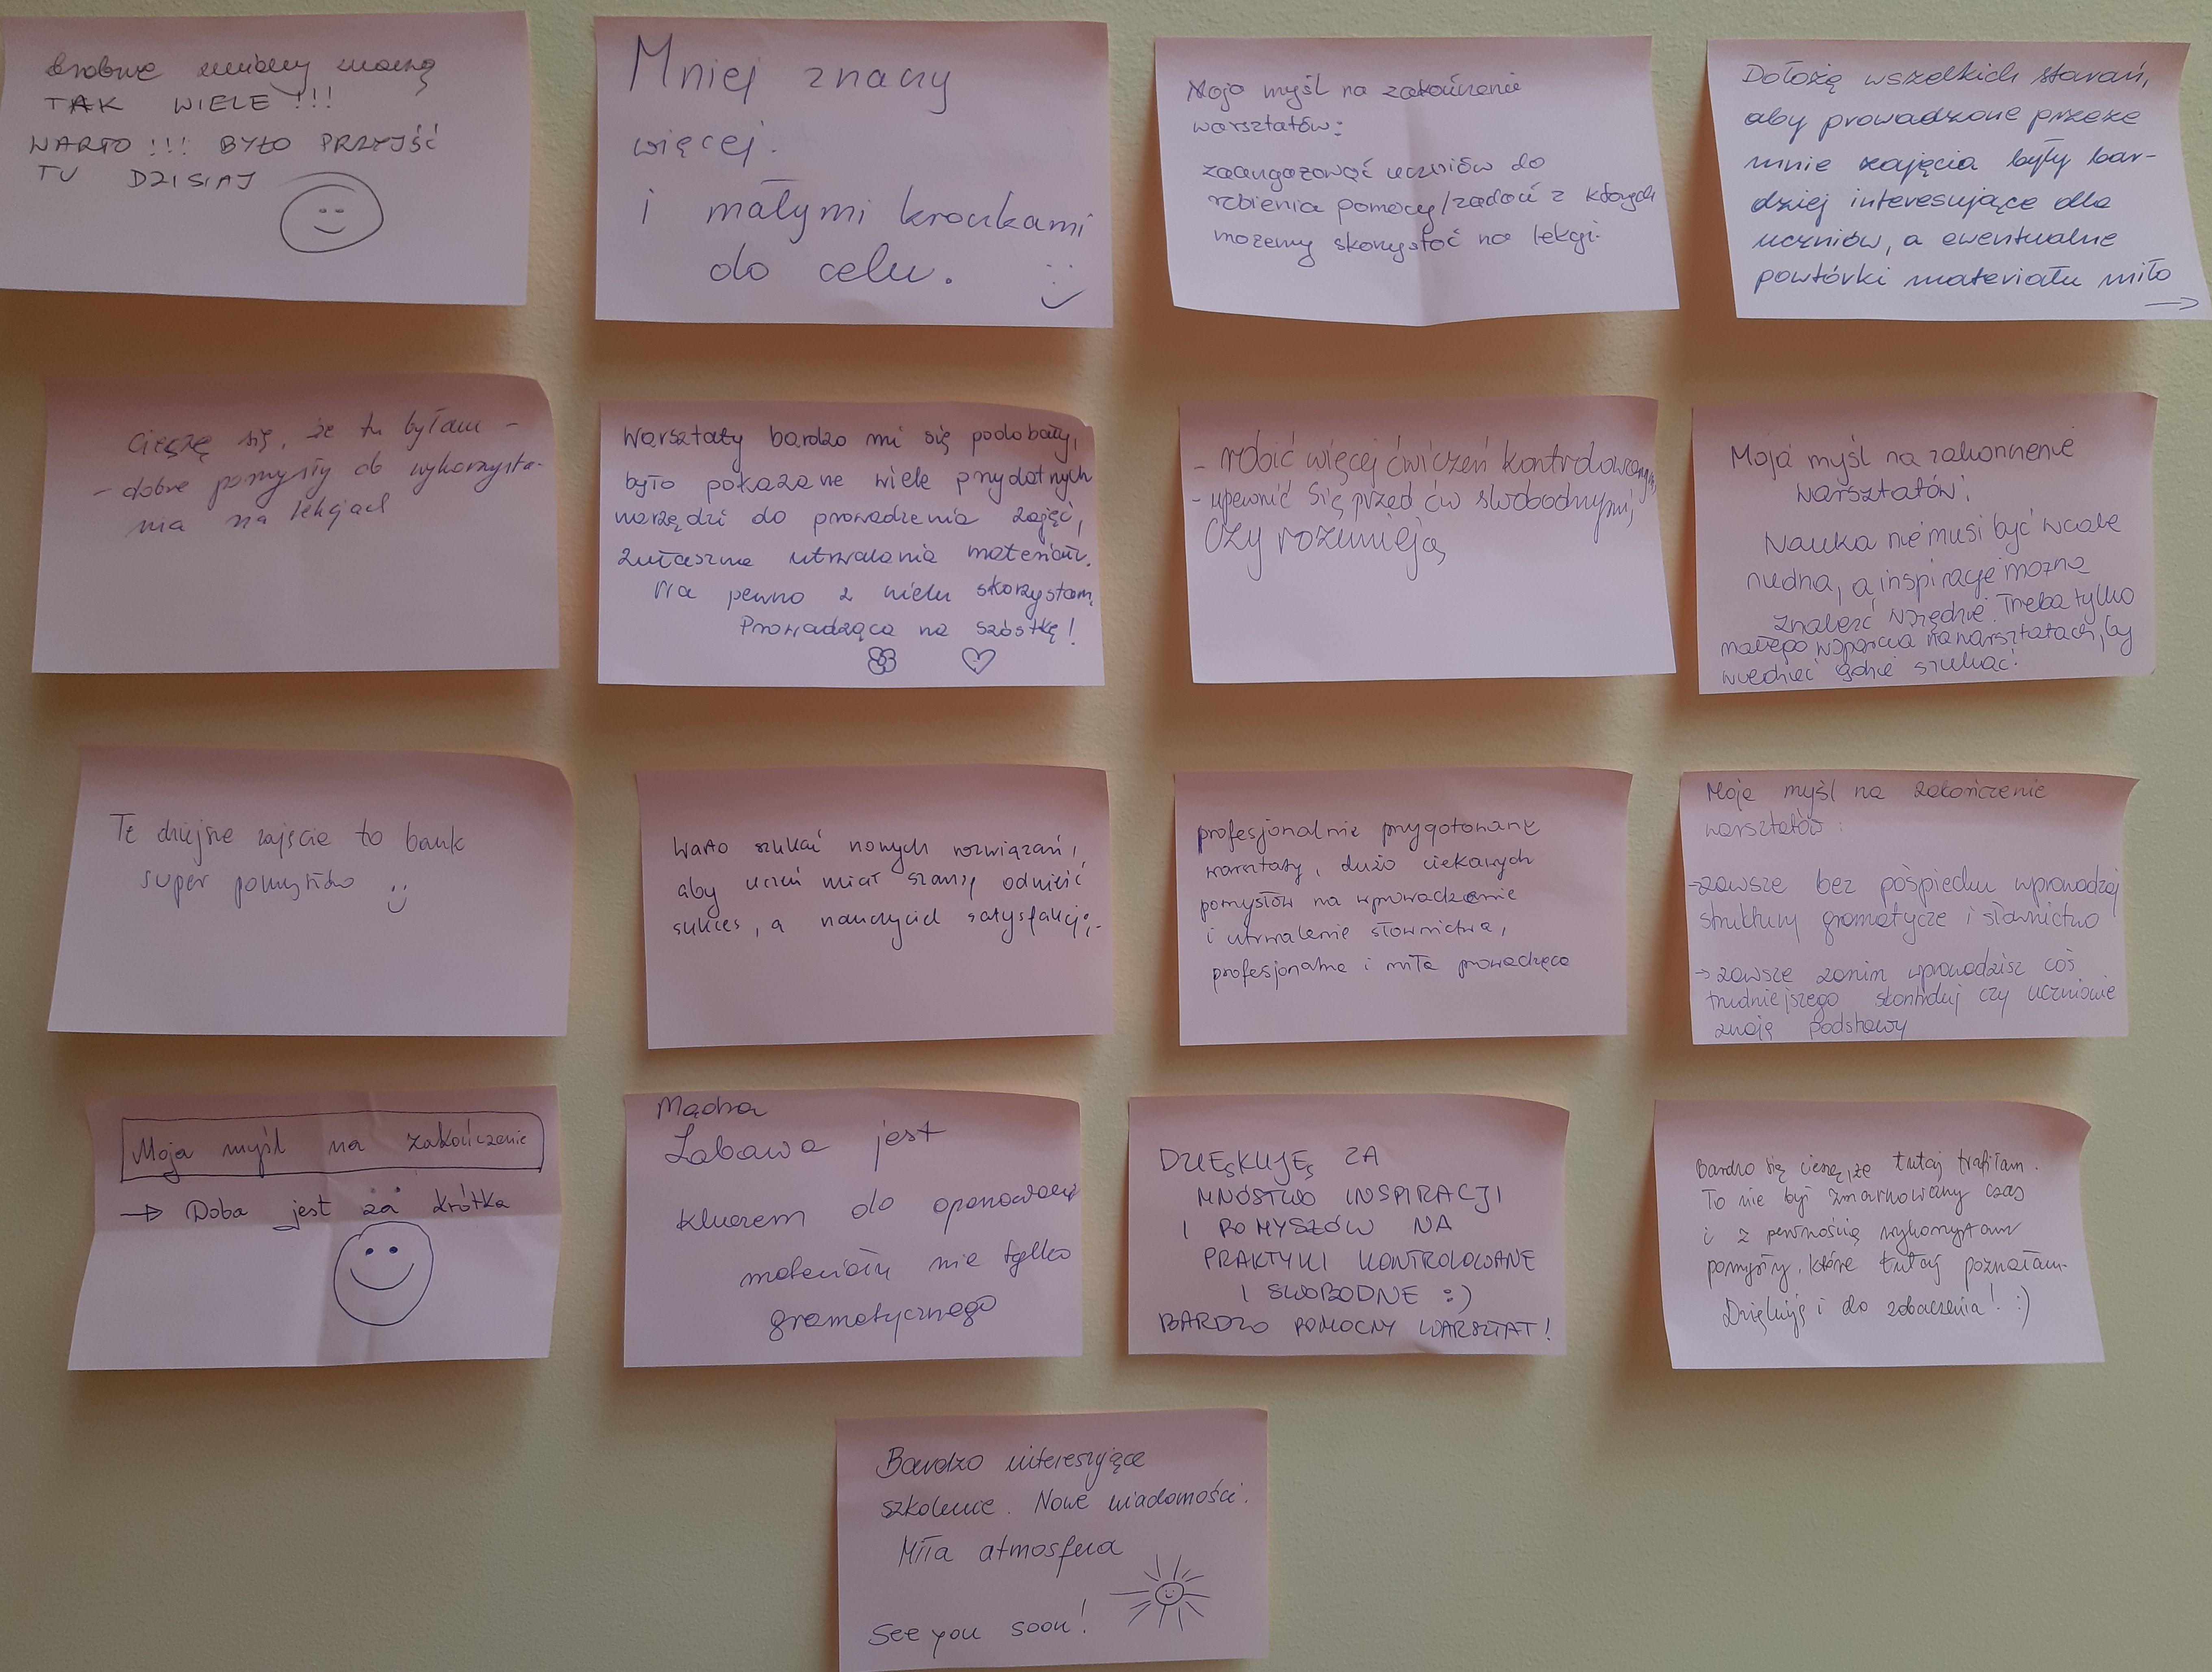 drobne zmiany znaczą
TAK WIELE !!!
WARTO !!! BYŁO PRZYJŚĆ
TU DZISIAJ
Mniej znaczy
więcej.
i małymi kroczkami
do celu.
Moja myśl na zakończenie
warsztatów:
zaangażować uczniów do
robienia pomocy/zadań z których
możemy skorzystać na lekcji.
Dołożę wszelkich starań,
aby prowadzone przeze
mnie zajęcia były bar-
dziej interesujące dla
uczniów, a ewentualne
powtórki materiału miło
→
Cieszę się, że tu byłam -
- dobre pomysły do wykorzysta-
nia na lekcjach
Warsztaty bardzo mi się podobały,
było pokazane wiele przydatnych
narzędzi do prowadzenia zajęć,
zwłaszcza utrwalania materiału.
Na pewno z wielu skorzystam.
Prowadząca na szóstkę!
- robić więcej ćwiczeń kontrolowanych,
- upewnić się przed ćw swobodnymi,
czy rozumieją
Moja myśl na zakończenie
warsztatów:
Nauka nie musi być wcale
nudna, a inspirację można
znaleźć wszędzie. Trzeba tylko
małego wsparcia na warsztatach, by
wiedzieć gdzie szukać!
Te dzisiejsze zajęcia to bank
super pomysłów :)
Warto szukać nowych rozwiązań,
aby uczeń miał szansę odnieść
sukces, a nauczyciel satysfakcję.
profesjonalnie przygotowane
warsztaty, dużo ciekawych
pomysłów na wprowadzenie
i utrwalenie słownictwa,
profesjonalna i miła prowadząca
Moja myśl na zakończenie
warsztatów:
-zawsze bez pośpiechu wprowadzaj
struktury gramatycze i słownictwo
→ zawsze zanim wprowadzisz coś
trudniejszego skontroluj czy uczniowie
znają podstawy
Moja myśl na zakończenie
→ Doba jest za krótka
Mądra
Zabawa jest
kluczem do opanowania
materiału nie tylko
gramatycznego
DZIĘKUJĘ ZA
MNÓSTWO INSPIRACJI
I POMYSŁÓW NA
PRAKTYKI KONTROLOWANE
I SWOBODNE :)
BARDZO POMOCNY WARSZTAT!
Bardzo się cieszę, że tutaj trafiłam.
To nie był zmarnowany czas
i z pewnością wykorzystam
pomysły, które tutaj poznałam.
Dziękuję i do zobaczenia! :)
Bardzo interesujące
szkolenie. Nowe wiadomości.
Miła atmosfera
See you soon!